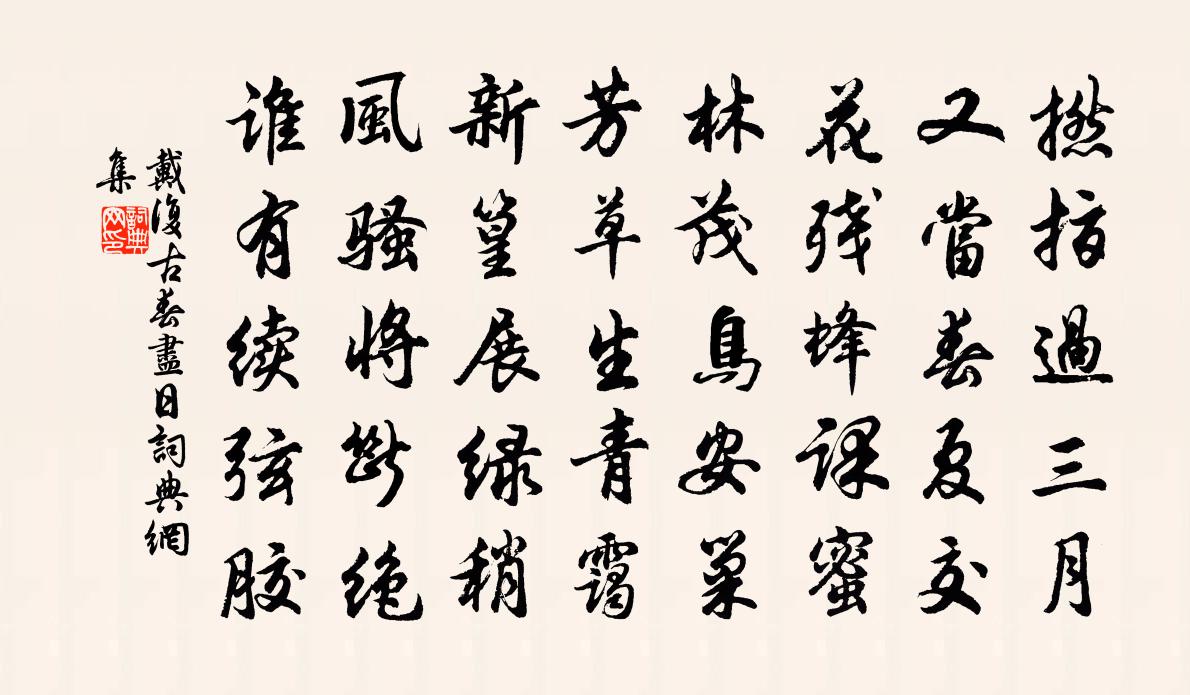 撚指過三月
又當春夏交
花残蜂課蜜
林茂鳥安巢
芳草生青靄
新篁展緑稍
風騷将斷绝
谁有续弦胶
戴復古春盡日詞典網
集
詞典
网印